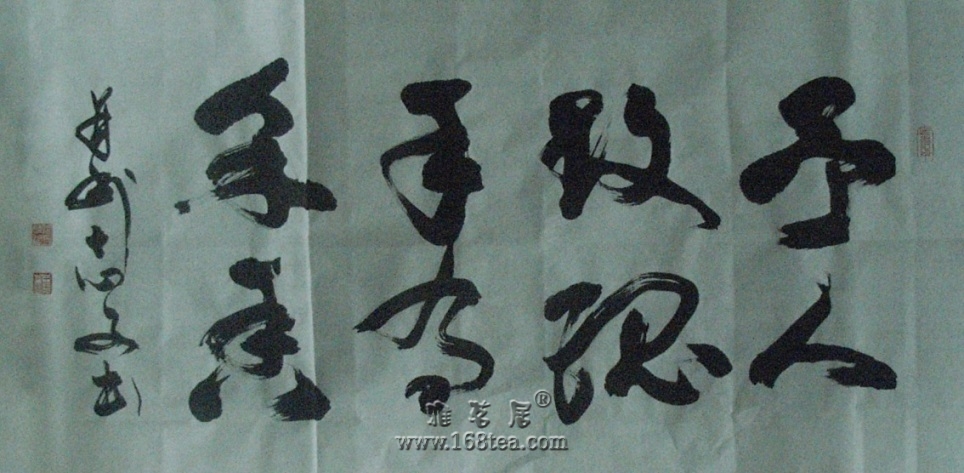 予人
玫瑰
手有
余香
雅茗居®
www.168tea.com